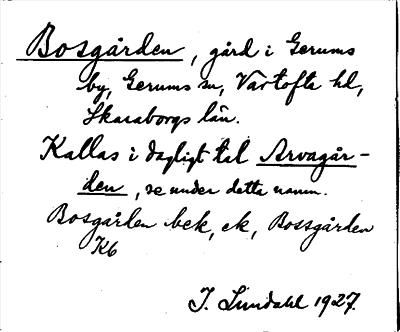 Bosgården, gård i Gerums
by, Gerums sn, Vartofta hd,
Skaraborgs län.
Kallas i dagligt tal Arvagår-
den, se under detta namn.
Bosgården bek, ek, Bossgården
Kb
J. Lundahl 1927.